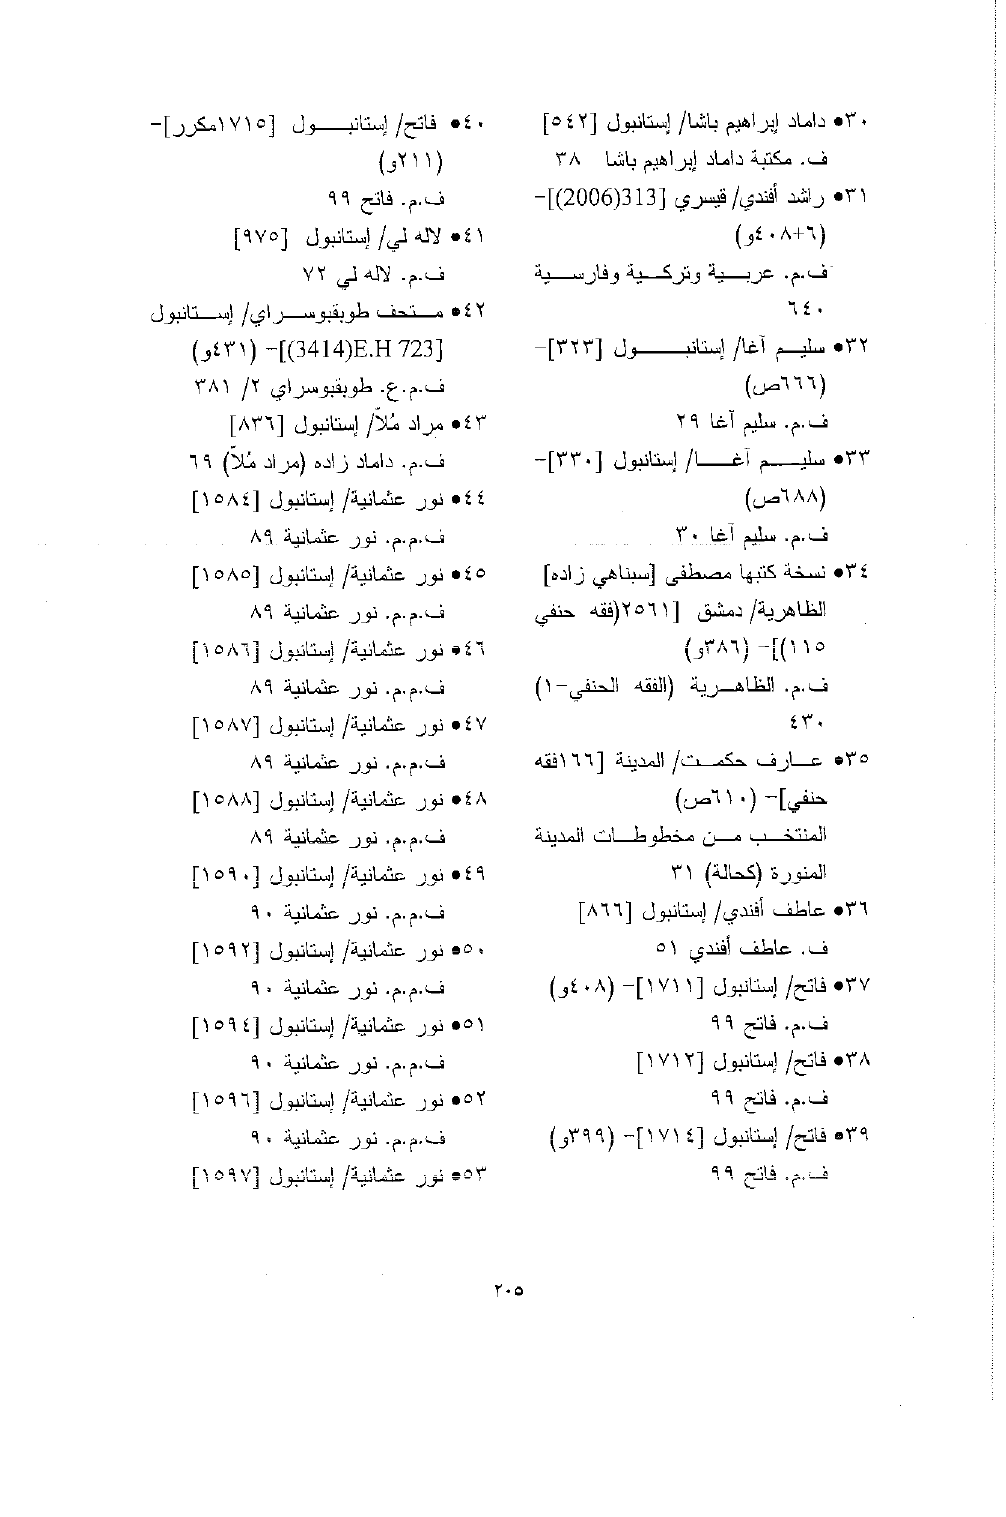 ٣٠• داماد إبراهيم باشا/ إستانبول [٥٤٢]
ف. مكتبة داماد إبراهيم باشا ٣٨
٣١• راشد أفندي/ قيسري [313(2006)]-
(٦+٤٠٨و)
ف.م. عربـــية وتركـــية وفارســـية
٦٤٠
٣٢• سليـم آغا/ إستانبـــول [٣٢٣]-
(٦٦٦ص)
ف.م. سليم آغا ٢٩
٣٣• سليـــم آغـــا/ إستانبول [٣٣٠]-
(٦٨٨ص)
ف.م. سليم آغا ٣٠
٣٤• نسخة كتبها مصطفى [سبناهي زاده]
الظاهرية/ دمشق [٢٥٦١(فقه حنفي
١١٥)]- (٣٨٦و)
ف.م. الظاهـرية (الفقه الحنفي-١)
٤٣٠
٣٥• عـــارف حكمـــت/ المدينة [١٦٦فقه
حنفي]- (٦١٠ص)
المنتخـــب مـــن مخطوطـــات المدينة
المنورة (كحالة) ٣١
٣٦• عاطف أفندي/ إستانبول [٨٦٦]
ف. عاطف أفندي ٥١
٣٧• فاتح/ إستانبول [١٧١١]- (٤٠٨و)
ف.م. فاتح ٩٩
٣٨• فاتح/ إستانبول [١٧١٢]
ف.م. فاتح ٩٩
٣٩• فاتح/ إستانبول [١٧١٤]- (٣٩٩و)
ف.م. فاتح ٩٩
٤٠• فاتح/ إستانبـــول [١٧١٥مكرر]-
(٢١١و)
ف.م. فاتح ٩٩
٤١• لاله لي/ إستانبول [٩٧٥]
ف.م. لاله لي ٧٢
٤٢• متـــحف طوبقبوســـراي/ إســـتانبول
[E.H 723(3414)]- (٤٣١و)
ف.م.ع. طوبقبوسراي ٢/ ٣٨١
٤٣• مراد مُلاّ/ إستانبول [٨٣٦]
ف.م. داماد زاده (مراد مُلاّ) ٦٩
٤٤• نور عثمانية/ إستانبول [١٥٨٤]
ف.م.م. نور عثمانية ٨٩
٤٥• نور عثمانية/ إستانبول [١٥٨٥]
ف.م.م. نور عثمانية ٨٩
٤٦• نور عثمانية/ إستانبول [١٥٨٦]
ف.م.م. نور عثمانية ٨٩
٤٧• نور عثمانية/ إستانبول [١٥٨٧]
ف.م.م. نور عثمانية ٨٩
٤٨• نور عثمانية/ إستانبول [١٥٨٨]
ف.م.م. نور عثمانية ٨٩
٤٩• نور عثمانية/ إستانبول [١٥٩٠]
ف.م.م. نور عثمانية ٩٠
٥٠• نور عثمانية/ إستانبول [١٥٩٢]
ف.م.م. نور عثمانية ٩٠
٥١• نور عثمانية/ إستانبول [١٥٩٤]
ف.م.م. نور عثمانية ٩٠
٥٢• نور عثمانية/ إستانبول [١٥٩٦]
ف.م.م. نور عثمانية ٩٠
٥٣• نور عثمانية/ إستانبول [١٥٩٧]
٢٠٥